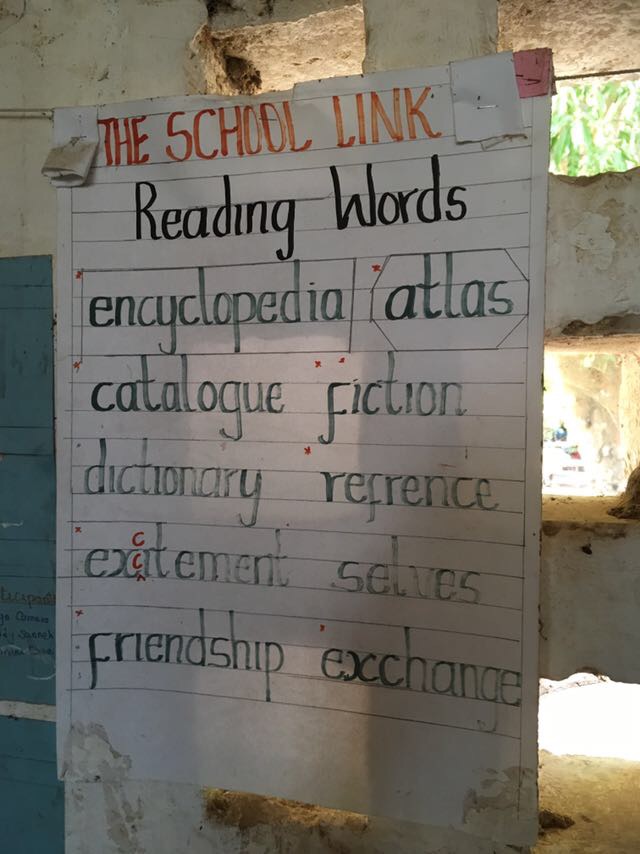 THE SCHOOL LINK
Reading Words
encyclopedia atlas
catalogue fiction
dictionary refrence
excitement selves
friendship excchange